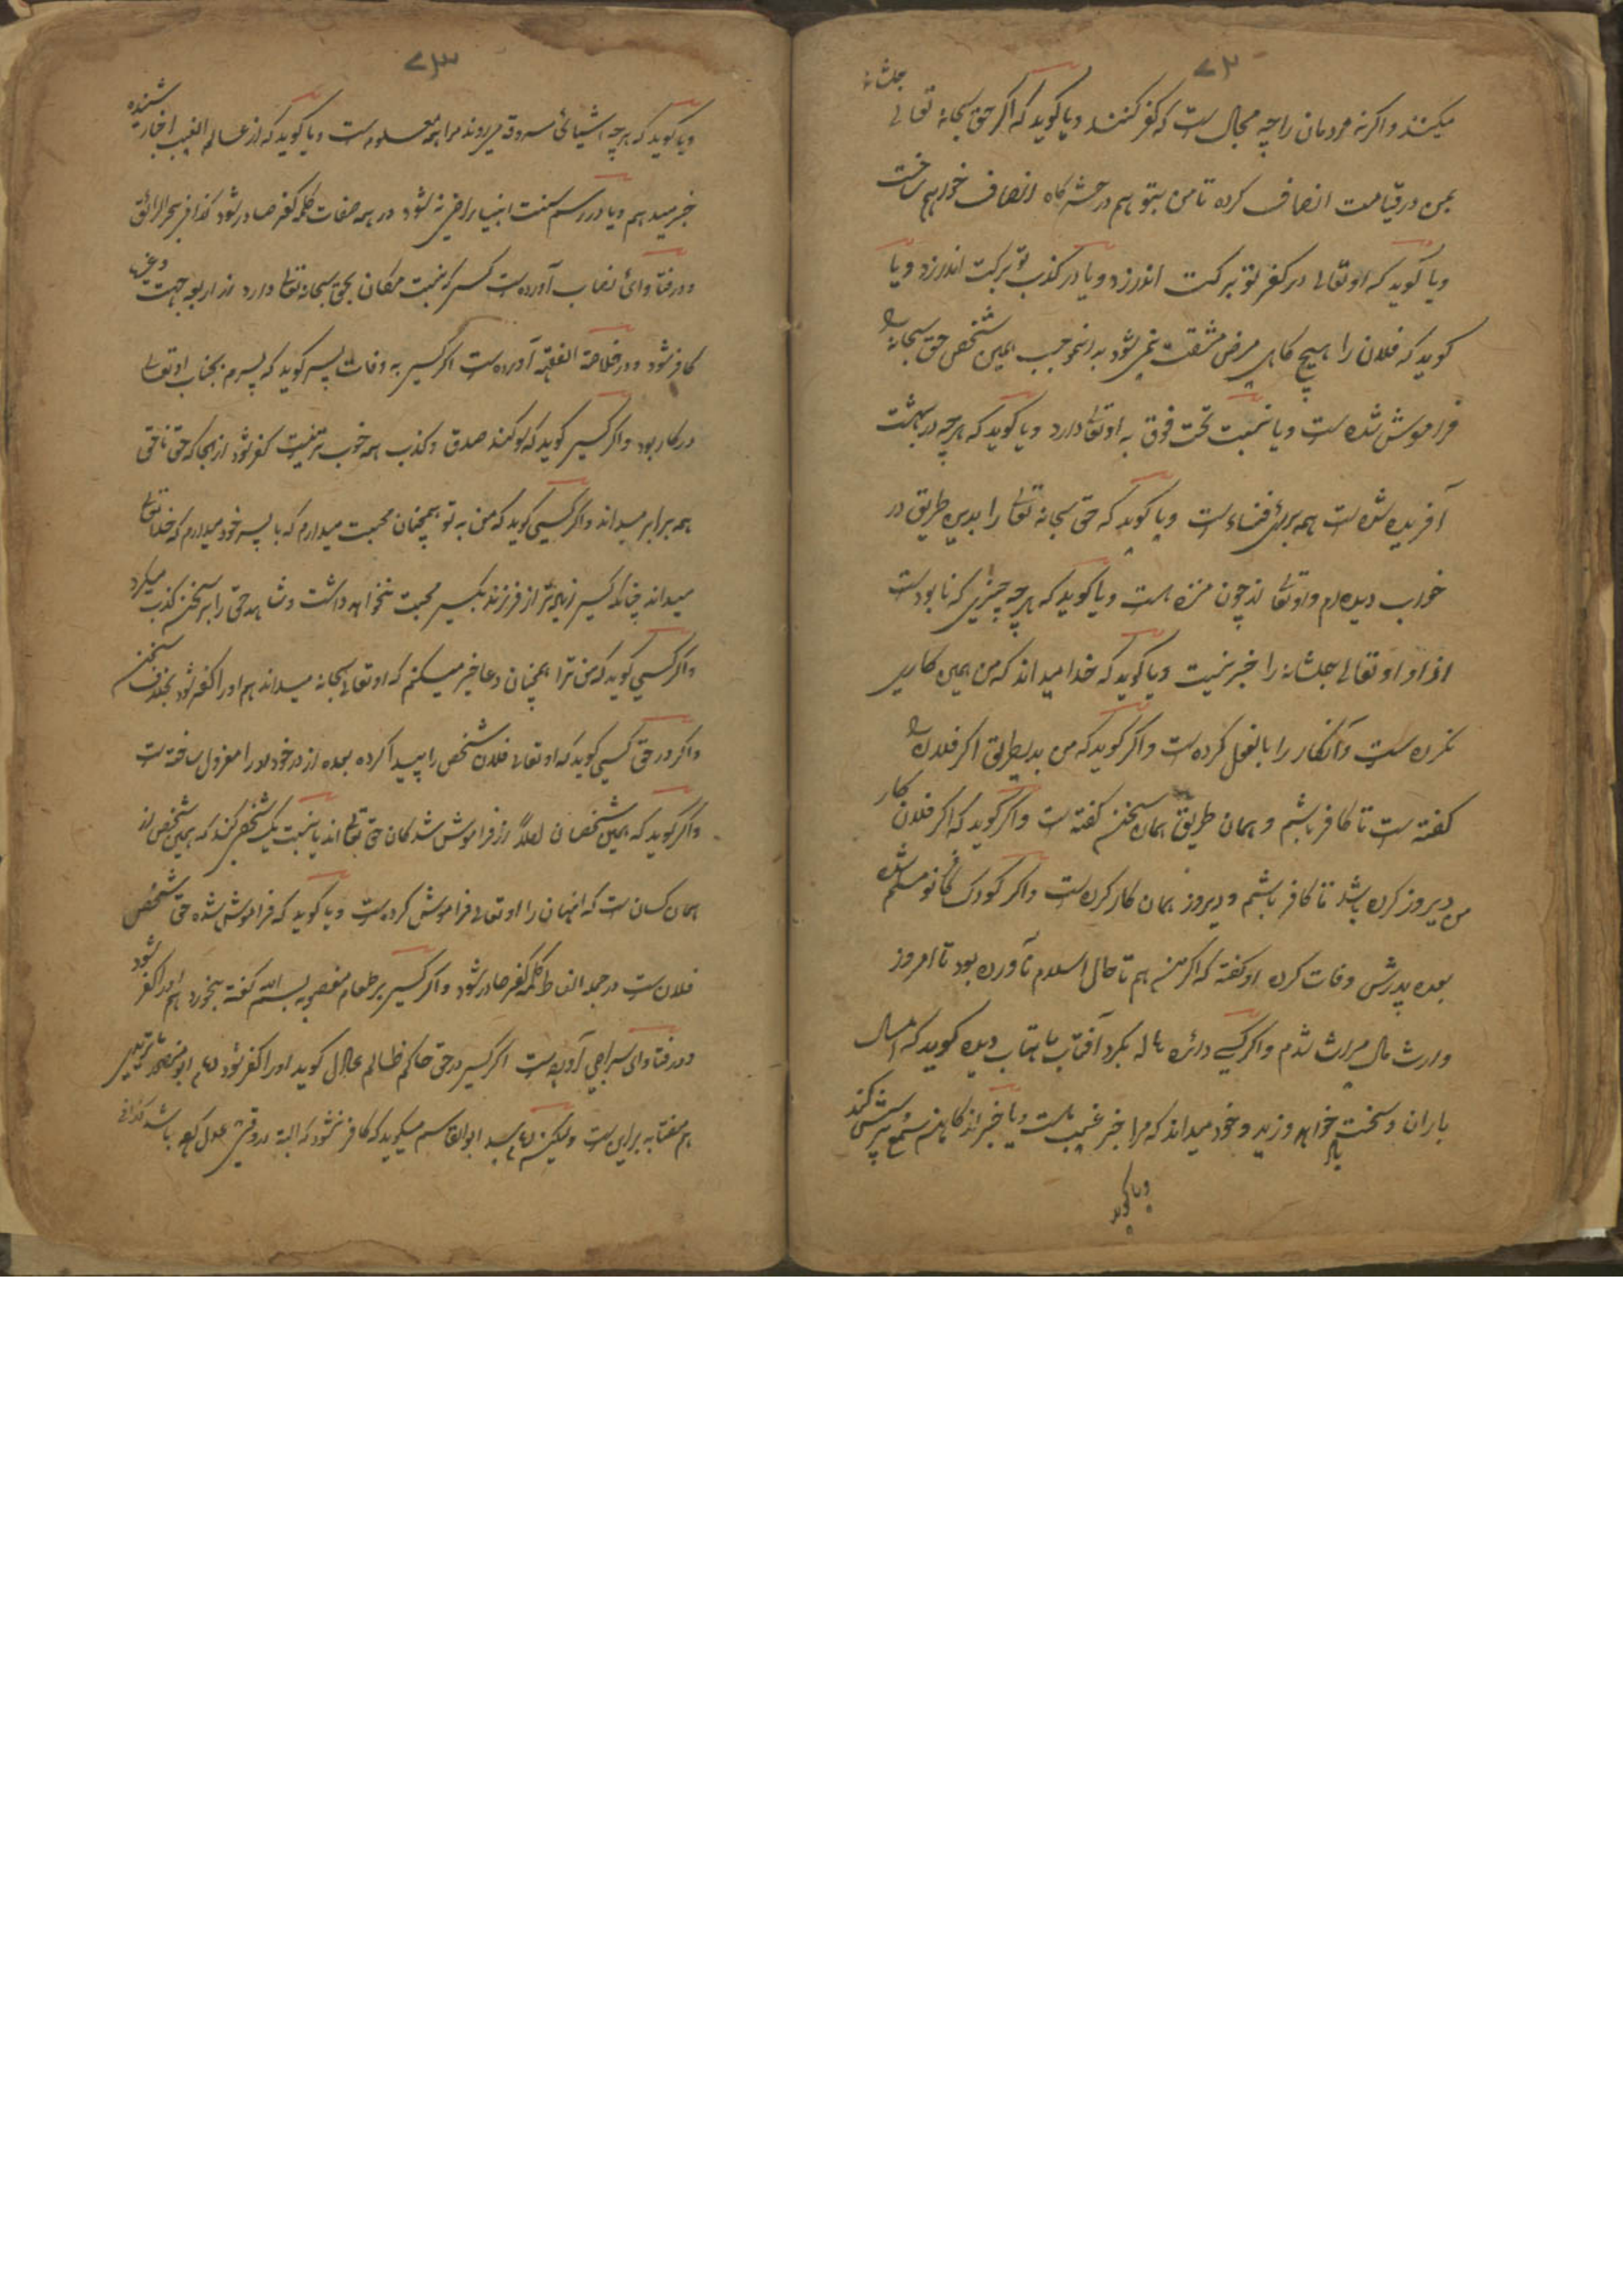 ۷۲
میکنند و اگرنه مردمان را چه مجال است که کفر کنند و یا گوید که اگر حق سبحانه تعالی جلشانه
بمن در قیامت انصاف کرده تا من بتو هم در حشرگاه انصاف خواهم ساخت
و یا گوید که او تعالی در کفر تو برکت اندازد و یا در کذب تو برکت اندازد و یا
گوید که فلان را هیچ گاهی مرض مشقت نمی شود همین شخص حق سبحانه را
فراموش شده است و یا نسبت تحت فوق به او تعالی دارد و یا گوید که هر چه در بهشت
آفریده شده است همه برای فناء است و یا گوید که حق سبحانه تعالی را بدین طریق در
خواب دیده ام و او تعالی از چون منزه است و یا گوید که هر چه چیزی که نابود است
از او او تعالی جلشانه را خبر نیست و یا گوید که خدا میداند که من همین کاری
نکرده است و آنکار را بالفعل کرده است و اگر گوید که من بدین طریق اگر فلان را
گفته است تا کافر باشم و همان طریق همان سخن گفته است و اگر گوید که اگر فلان کار
من دیروز کرده باشد تا کافر باشم و دیروز همان کار کرده است و اگر کودک نو مسلم شده
بعده پدرش وفات کرده او گفته که اگر من هم تا حال اسلام نآورده بود تا امروز
وارث مال میراث شدم و اگر کسی دائره هاله بگرد آفتاب یا مهتاب دیده گوید که امسال
باران و سخت خواهد وزید و خود میداند که مرا خبر غیب است و یا خبر از کاهنم پرسش کند
و یا گوید
۷۳
و یا گوید که هر چه اشیائی مسروقه میروند مرا همه معلوم است و یا گوید که از عالم الغیب اخبار شنیده
خبر میدهم و یا در رسم سنت انبیا راضی نه شود در همه صفات کلمه کفر صادر شود کذا فی بحر الرائق وغیره
و در فتاوای نصاب آورده است کسی که نسبت مکان بحق سبحانه تعالی دارد از اربعه جهت
کافر شود و در خلاصة الفقه آورده است اگر کسی به وفات پسر گوید که پسرم بجناب او تعالی
درکار بود و اگر کسی گوید که سوگند صدق و کذب همه خوب تر نیست کفر شود از بهجا که حق ناحق
همه برابر میداند و اگر کسی گوید که من به تو همچنان محبت میدارم که با پسر خود میدارم که خدا تعالی
میداند چنانکه کسی زیاده تر از فرزند بکسی محبت نخواهد داشت و شاهد حق را بر سخن کذب میکرد
و اگر کسی گوید که من ترا همچنان دعا خیر میکنم که او تعالی سبحانه میداند هم او را کفر شود بخلاف سخن
و اگر در حق کسی گوید که او تعالی فلان شخص را پیدا کرده بعده از در خود او را معزول ساخته است
و اگر گوید که همین شخصان از فراموش شدگان حق تعالی اند یا نسبت یک شخص کند که همین شخص از
همان کسان است که انهان را او تعالی فراموش کرده است و یا گوید که فراموش شده حق شخص
فلان است در جمله الفاظ کلمه کفر صادر شود و اگر کسی بر طعام مغصوبه بسم الله گفته بخورد هم او را کفر شود
و در فتاوای سراجی آورده است اگر کسی در حق حاکم ظالم عادل گوید او را کفر شود امام ابو منصور ماتریدی
هم مفتابه برای است ولیکن امام سید ابوالقاسم میگوید که کافر نشود که البته در وقتی عدل کرده باشد